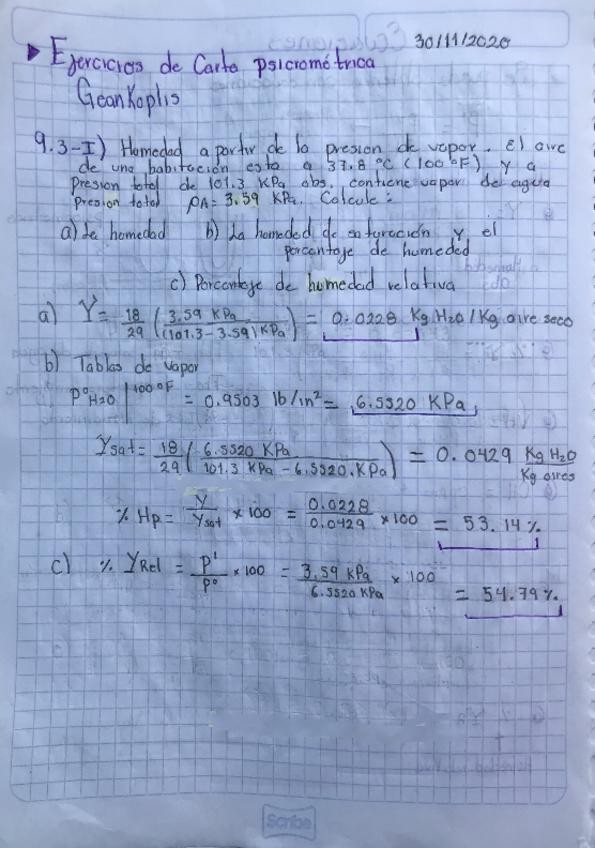 30/11/2020
▶ Ejercicios de Carta Psicrométrica
GeanKoplis
9.3-I) Humedad a partir de la presion de vapor. El aire
de una habitación esta a 37.8 °C (100 °F) y a
Presion total de 101.3 KPa abs. contiene vapor de agua
Presion total PA= 3.59 KPa. Calcule:
a) La humedad b) La humedad de saturación y el
porcentaje de humedad
c) Porcentaje de humedad relativa
a) Y = 18/29 (3.59 KPa / (101.3 - 3.59) KPa) = 0.0228 Kg H2O / Kg aire seco
b) Tablas de vapor
P°H2O | 100 °F = 0.9503 lb/in² = 6.5520 KPa
Ysat = 18/29 (6.5520 KPa / 101.3 KPa - 6.5520 KPa) = 0.0429 Kg H2O / Kg aires
% Hp = Y/Ysat × 100 = 0.0228/0.0429 × 100 = 53.14 %
c) % YRel = P'/P° × 100 = 3.59 KPa / 6.5520 KPa × 100 = 54.79 %
Scribe